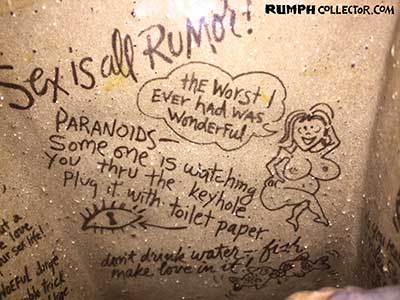 RUMPH COLLECTOR.COM
Sex is all RUMOR!
the WORST I
EVER had WAS
WonderFul
PARANOIDS—
Some one is watching
you thru the keyhole
Plug it with toilet paper.
don't drink water — fish
make love in it!
ut a
love
ur sex life!
dirge
trick